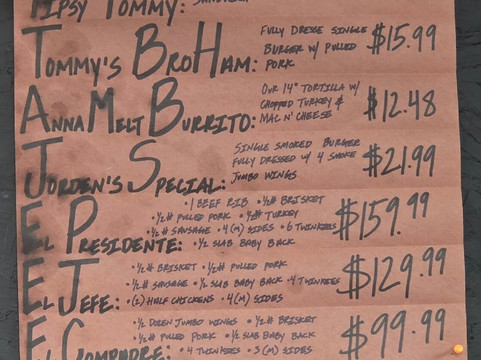 Tipsy Tommy:
Tommy's BroHam: Fully Dresse Single
Burger w/ Pulled
Pork $15.99
AnnaMelt Burrito: Our 14" Tortilla w/
Chopped Turkey &
Mac n' Cheese $12.48
Jorden's Special: Single Smoked Burger
Fully Dressed w/ 4 Smoke
Jumbo Wings $21.99
El Presidente: • 1 Beef Rib • 1/2# Brisket
• 1/2# Pulled Pork • 1/2# Turkey
• 1/2# Sausage • 4 (M) Sides • 6 Twinkees
• 1/2 Slab Baby Back $159.99
El Jefe: • 1/2# Brisket • 1/2# Pulled Pork
• 1/2# Sausage • 1/2 Slab Baby Back • 4 Twinkees
• (2) Half Chickens • 4 (M) Sides $129.99
El Compadre: • 1/2 Dozen Jumbo Wings • 1/2# Brisket
• 1/2# Pulled Pork • 1/2 Slab Baby Back
• 4 Twinkees • 3 (M) Sides $99.99